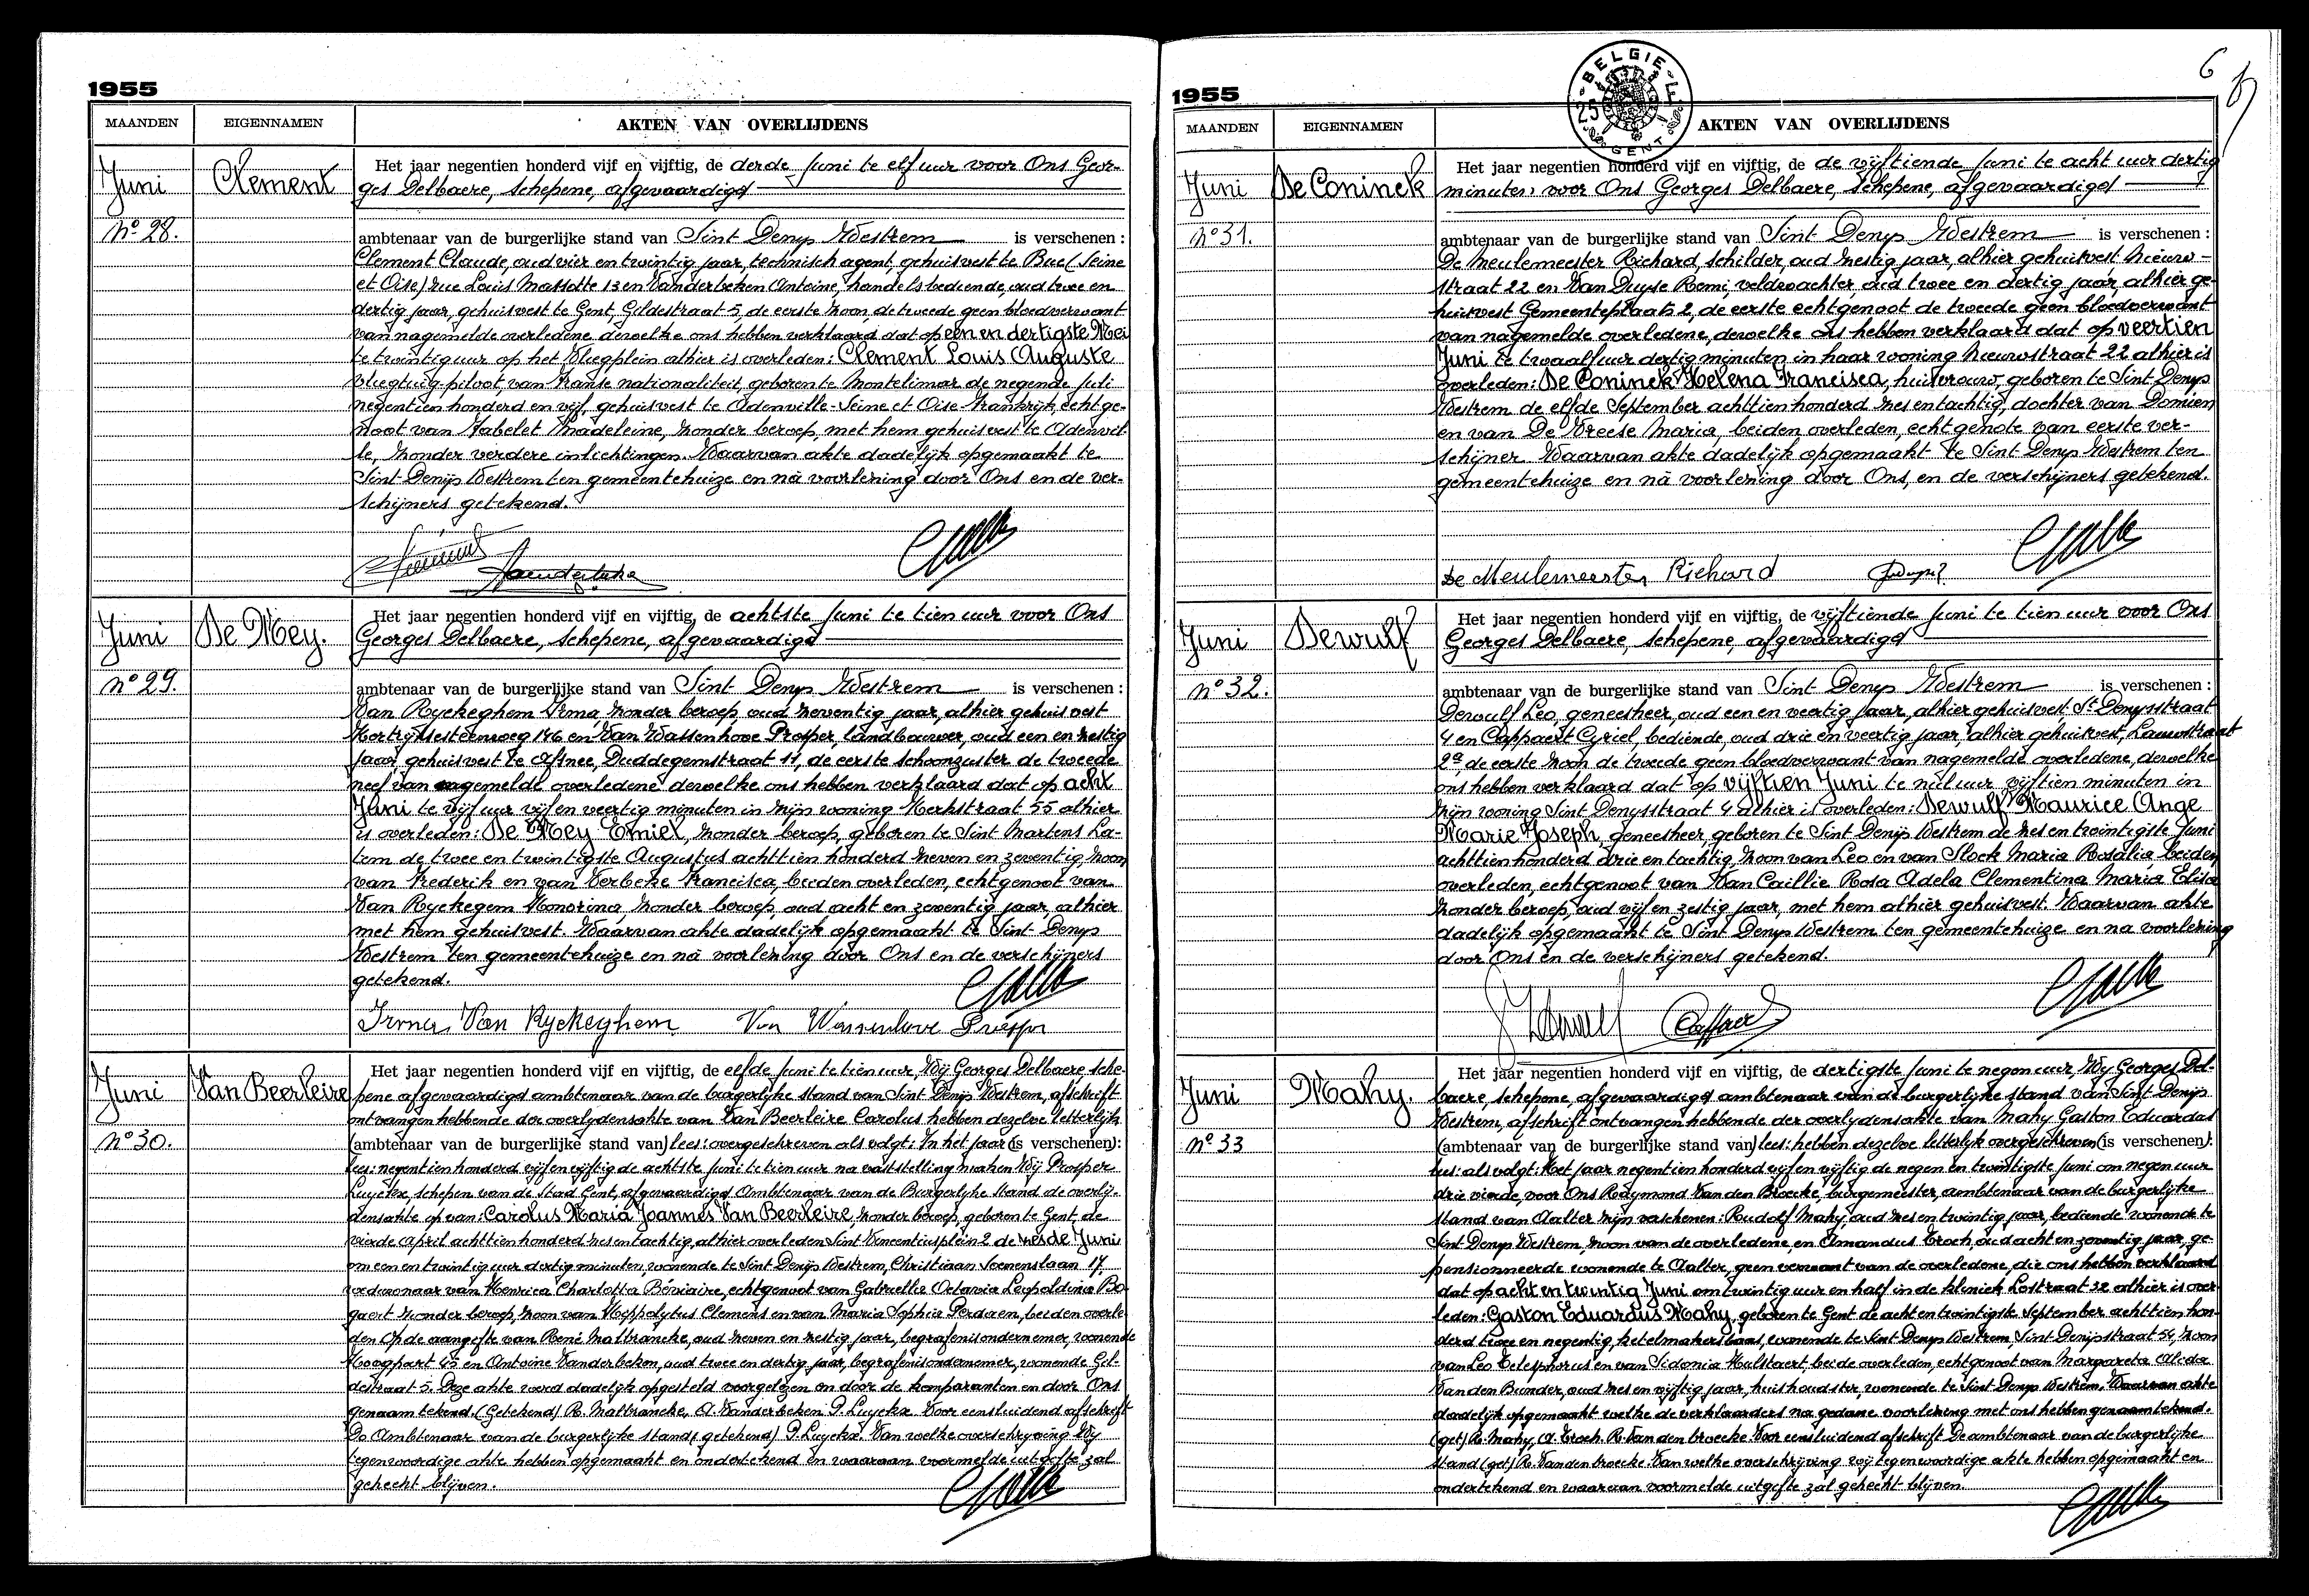 1955
MAANDEN EIGENNAMEN AKTEN VAN OVERLIJDENS
Juni Clement
Nº 28.
Het jaar negentien honderd vijf en vijftig, de derde Juni te elf uur voor Ons Geor-
ges Delbaere, Schepene, afgevaardigd
ambtenaar van de burgerlijke stand van Sint Denys Westrem is verschenen :
Clement Claude, oud vier en twintig jaar, technisch agent, gehuisvest te Buc (Seine
et Oise) rue Louis Massotte 13 en Vanderbeken Antoine, handelsbediende, oud twee en
dertig jaar, gehuisvest te Gent, Gildestraat 5, de eerste zoon, de tweede geen bloedverwant
van nagemelde overledene, dewelke ons hebben verklaard dat op een en dertigste Mei
te twintig uur op het vliegplein alhier is overleden: Clement Louis Auguste
vliegtuig-piloot, van Franse nationaliteit, geboren te Montelimar de negende Juli
negentien honderd en vijf, gehuisvest te Adenville-Seine et Oise-Frankrijk, echtge-
noot van Jabelet Madeleine, zonder beroep, met hem gehuisvest te Adenvil-
le, zonder verdere inlichtingen. Waarvan akte dadelijk opgemaakt te
Sint Denijs Westrem ten gemeentehuize en nà voorlezing door Ons en de ver-
schijners getekend.
Juni De Mey.
Nº 29.
Het jaar negentien honderd vijf en vijftig, de achtste Juni te tien uur voor Ons
Georges Delbaere, Schepene, afgevaardigd
ambtenaar van de burgerlijke stand van Sint Denys Westrem is verschenen :
Van Ryckeghem Irma, zonder beroep, oud zeventig jaar, alhier gehuisvest
Kortrijksesteenweg 146 en Van Wassenhove Prosper, landbouwer, oud een en zestig
jaar, gehuisvest te Afsnee, Duddegemstraat 11, de eerste schoonzuster de tweede
neef van nagemelde overledene dewelke ons hebben verklaard dat op acht
Juni te vijf uur vijf en veertig minuten in zijn woning Kerkstraat 55 alhier
is overleden: De Mey Emiel, zonder beroep, geboren te Sint Martens La-
tem de twee en twintigste Augustus achttien honderd zeven en zeventig, zoon
van Frederik en van Verbeke Francisca, beiden overleden, echtgenoot van
Van Ryckegem Honorina, zonder beroep, oud acht en zeventig jaar, alhier
met hem gehuisvest. Waarvan akte dadelijk opgemaakt te Sint Denys
Westrem ten gemeentehuize en nà voorlezing door Ons en de verschijners
getekend.
Irma Van Ryckeghem Van Wassenhove Prosper
Juni Van Beerleire
Nº 30.
Het jaar negentien honderd vijf en vijftig, de elfde Juni te tien uur, Wij Georges Delbaere, Sche-
pene afgevaardigd ambtenaar van de burgerlijke stand van Sint Denijs Westrem, afschrift
ontvangen hebbende der overlydensakte van Van Beerleire Carolus hebben dezelve letterlijk
(ambtenaar van de burgerlijke stand van) lees: overgeschreven als volgt: In het jaar (is verschenen):
lees: negentien honderd vijf en vijftig de achtste Juni te tien uur na vaststelling maken Wij Prosper
Luyckx, schepen van de Stad Gent, afgevaardigd Ambtenaar van de Burgerlyke Stand de overlij-
densakte op van: Carolus Maria Joannes Van Beerleire, zonder beroep, geboren te Gent, de
vierde April achttien honderd zes en tachtig, alhier overleden Sint Vincentiusplein 2 de zesde Juni
om een en twintig uur dertig minuten, wonende te Sint Denijs Westrem, Christiaan Soenenslaan 17,
weduwnaar van Henrica Charlotta Béviaire, echtgenoot van Gabrielle Octavia Leopoldina Bo-
gaert zonder beroep, zoon van Hyppolytus Clemens en van Maria Sophia Perdaen, beiden overle-
den. Op de aangifte van René Malbrancke, oud zeven en zestig jaar, begrafenisondernemer, wonende
Hoogpoort 45 en Antoine Vanderbeken, oud twee en dertig jaar, begrafenisondernemer, wonende Gil-
destraat 5. Deze akte werd dadelijk opgesteld voorgelezen en door de komparanten en door Ons
genaamtekend. (Getekend) R. Malbrancke, A. Vanderbeken P. Luyckx. Voor eensluidend afschrift
De Ambtenaar van de burgerlijke stand, getekend) P. Luyckx. Van welke overschryving Wij
tegenwoordige akte hebben opgemaakt en ondertekend en waaraan voormelde uitgifte zal
gehecht blijven.
6
BELGIE
25
GENT
1955
MAANDEN EIGENNAMEN AKTEN VAN OVERLIJDENS
Juni De Coninck
Nº 31.
Het jaar negentien honderd vijf en vijftig, de de vijftiende Juni te acht uur dertig
minuten, voor Ons Georges Delbaere, Schepene, afgevaardigd
ambtenaar van de burgerlijke stand van Sint Denys Westrem is verschenen :
De Meulemeester Richard, schilder, oud zestig jaar, alhier gehuisvest Nieuw-
straat 22 en Van Duyse Remi, veldwachter, oud twee en dertig jaar, alhier ge-
huisvest Gemeenteplaats 2, de eerste echtgenoot de tweede geen bloedverwant
van nagemelde overledene, dewelke ons hebben verklaard dat op veertien
Juni te twaalf uur dertig minuten in haar woning Nieuwstraat 22 alhier is
overleden: De Coninck Helena Francisca, huisvrouw, geboren te Sint Denys
Westrem de elfde September achttien honderd zes en tachtig, dochter van Domien
en van De Vreese Maria, beiden overleden, echtgenote van eerste ver-
schijner. Waarvan akte dadelijk opgemaakt te Sint Denys Westrem ten
gemeentehuize en nà voorlezing door Ons, en de verschijners getekend.
De Meulemeester Richard
Juni Dewulf
Nº 32.
Het jaar negentien honderd vijf en vijftig, de vijftiende Juni te tien uur voor Ons
Georges Delbaere, Schepene, afgevaardigd
ambtenaar van de burgerlijke stand van Sint Denys Westrem is verschenen :
Dewulf Leo, geneesheer, oud een en veertig jaar, alhier gehuisvest, St. Denysstraat
4 en Cappaert Cyriel, bediende, oud drie en veertig jaar, alhier gehuisvest, Lauwstraat
2ª, de eerste zoon de tweede geen bloedverwant van nagemelde overledene, dewelke
ons hebben verklaard dat op vijftien Juni te nul uur vijftien minuten in
zijn woning Sint Denysstraat 4 alhier is overleden: Dewulf Maurice Ange
Marie Joseph, geneesheer, geboren te Sint Denijs Westrem de zes en twintigste Juni
achttien honderd drie en tachtig, zoon van Leo en van Slock Maria Rosalia, beiden
overleden, echtgenoot van Van Caillie Rosa Adela Clementina Maria Elisa
zonder beroep, oud vijf en zestig jaar, met hem alhier gehuisvest. Waarvan akte
dadelijk opgemaakt te Sint Denys Westrem ten gemeentehuize en na voorlezing
door Ons en de verschijners getekend.
Juni Mahy.
Nº 33
Het jaar negentien honderd vijf en vijftig, de dertigste Juni te negen uur, Wy Georges Del-
baere, schepene, afgevaardigd ambtenaar van de burgerlijke stand van Sint Denijs
Westrem, afschrift ontvangen hebbende der overlydensakte van Mahy Gaston Eduardus
(ambtenaar van de burgerlijke stand van) lees: hebben dezelve letterlyk overgeschreven (is verschenen):
lees: als volgt: Het jaar negentien honderd vijf en vijftig de negen en twintigste Juni om negen uur
drie vierde, voor Ons Raymond Van den Broecke, burgemeester, ambtenaar van de burgerlijke
stand van Aalter zijn verschenen: Roudolf Mahy, oud zes en twintig jaar, bediende wonende te
Sint Denys Westrem, zoon van de overledene, en Amandus Troch, oud acht en zeventig jaar, ge-
pensionneerde wonende te Aalter, geen verwant van de overledene, die ons hebben verklaard
dat op acht en twintig Juni om twintig uur en half in de kliniek Lostraat 32 alhier is over-
leden: Gaston Eduardus Mahy, geboren te Gent de acht en twintigste September achttien hon-
derd twee en negentig, ketelmakersbaas, wonende te Sint Denys Westrem, Sint Denijsstraat 54, zoon
van Leo Telesphorus en van Sidonia Hulstaert, beide overleden, echtgenoot van Margareta Alida
Van den Bunder, oud zes en vijftig jaar, huishoudster, wonende te Sint Denys Westrem. Waarvan akte
dadelijk opgemaakt welke de verklaarders na gedane voorlezing met ons hebben genaamtekend.
(get) R. Mahy, A. Troch. R. Van den broecke. Voor eensluidend afschrift De ambtenaar van de burgerlijke
stand (get) R. Vanden broecke. Van welke overschrijving wij tegenwoordige akte hebben opgemaakt en
ondertekend en waarvan voormelde uitgifte zal gehecht blijven.